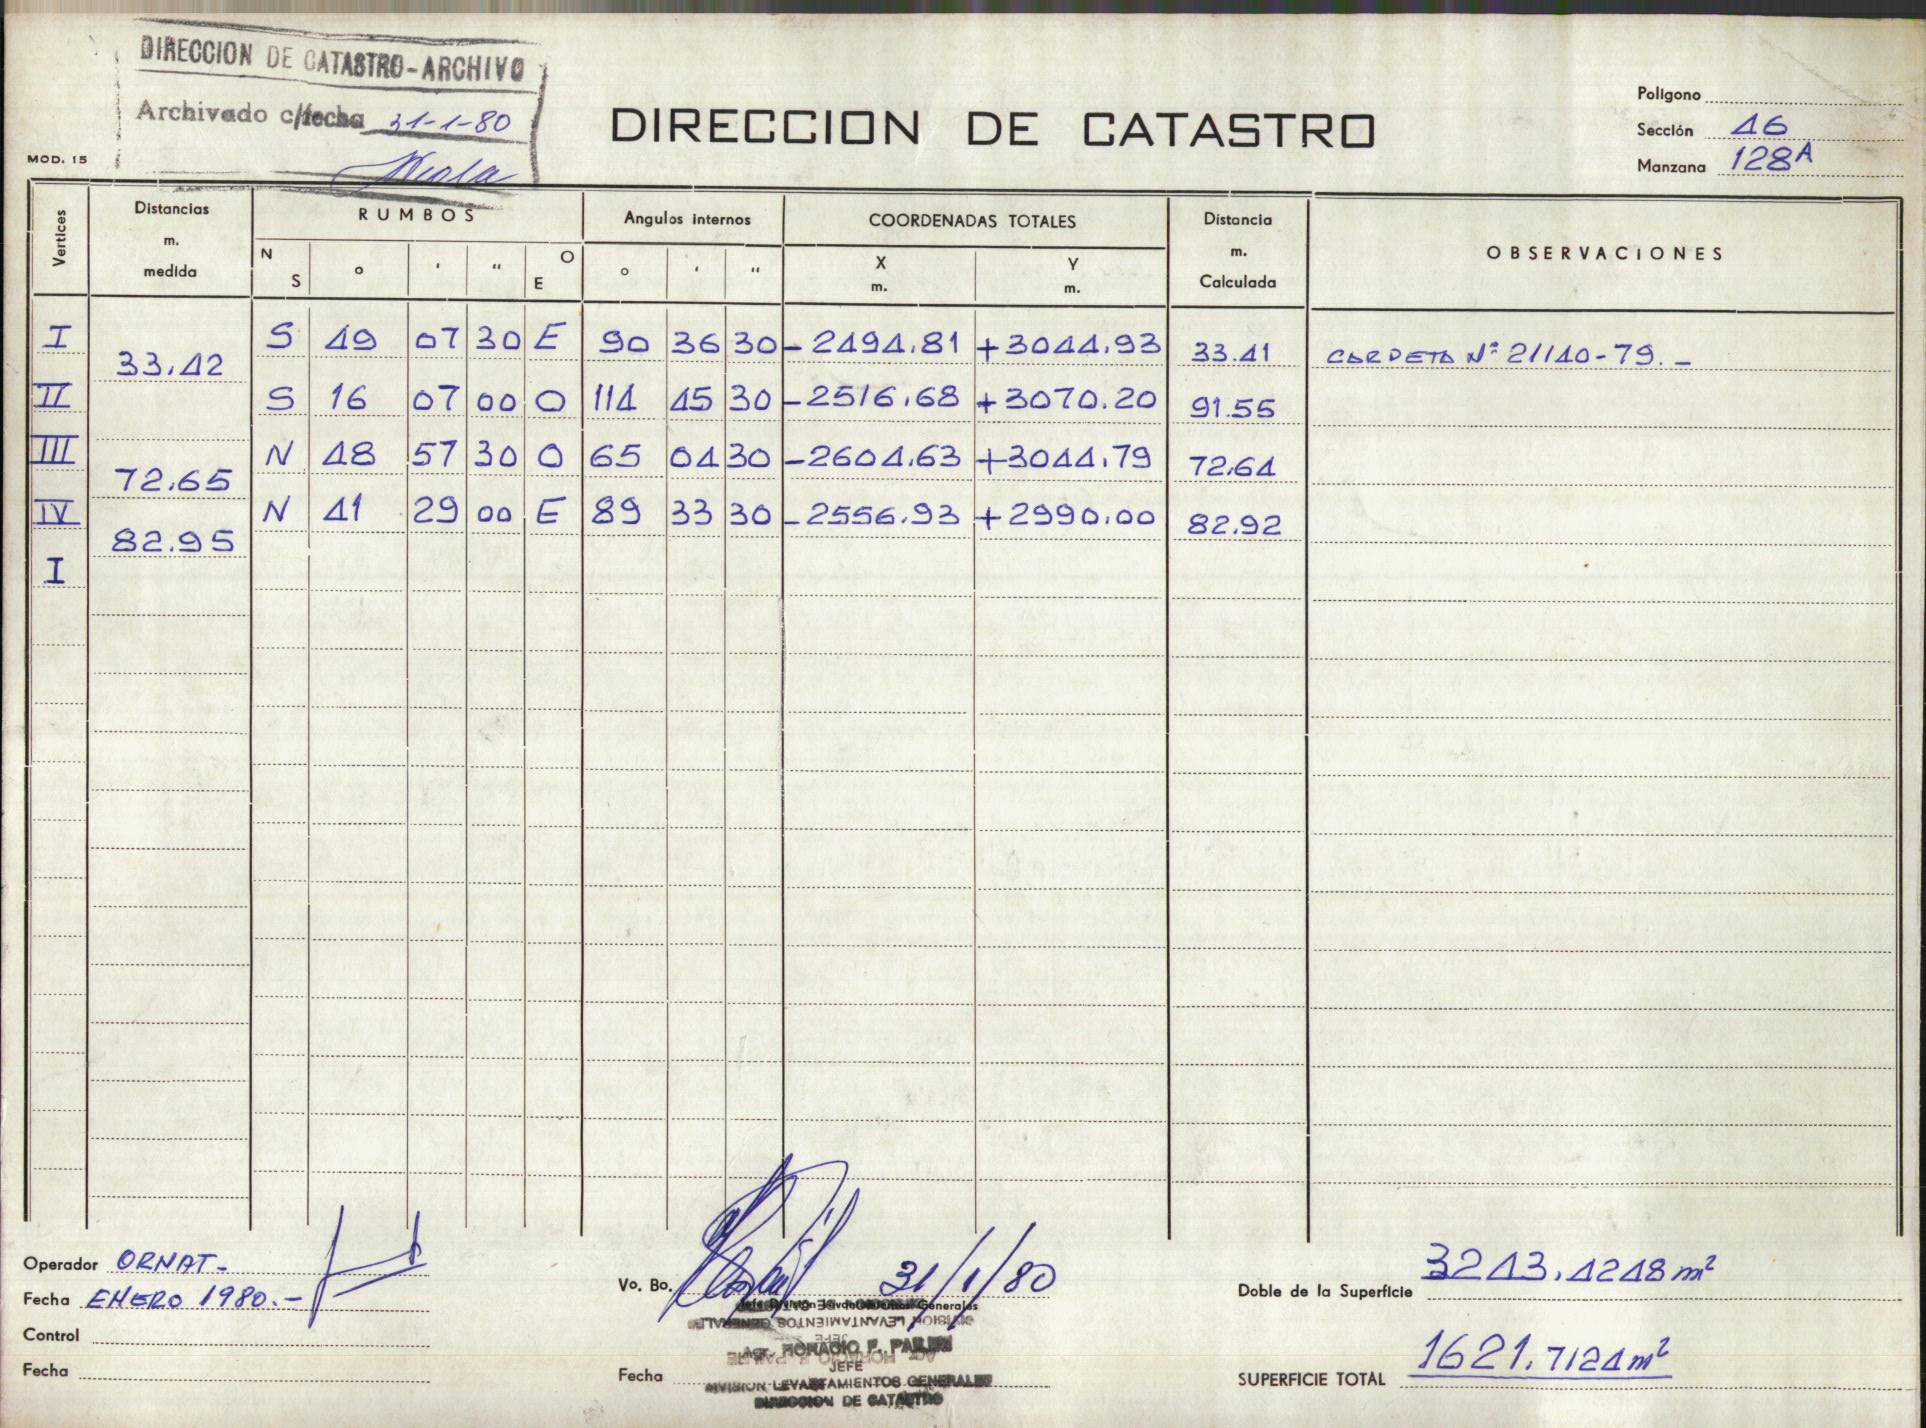 DIRECCION DE CATASTRO-ARCHIVO
Archivado c/fecha 31-1-80
MOD. 15
DIRECCION DE CATASTRO
Poligono
Sección 46
Manzana 128A
Vertices Distancias m. medida RUMBOS Angulos internos COORDENADAS TOTALES Distancia m. Calculada OBSERVACIONES
N S ° ' " O E ° ' " X m. Y m.
I S 49 07 30 E 90 36 30 -2494.81 +3044.93 33.41 CARPETA Nº 21140-79.-
33.42
II S 16 07 00 O 114 45 30 -2516.68 +3070.20 91.55
III N 48 57 30 O 65 04 30 -2604.63 +3044.79 72.64
72.65
IV N 41 29 00 E 89 33 30 -2556.93 +2990.00 82.92
82.95
I
Operador ORNAT-
Fecha ENERO 1980.-
Control
Fecha
Vo. Bo. 31/1/80
Jefe División Levantamientos Generales
DIVISION LEVANTAMIENTOS GENERALES
JEFE
Agr. HORACIO F.
JEFE
Fecha
DIVISION LEVANTAMIENTOS GENERALES
DIRECCION DE CATASTRO
Doble de la Superficie 3243.4248 m²
SUPERFICIE TOTAL 1621.7124 m²